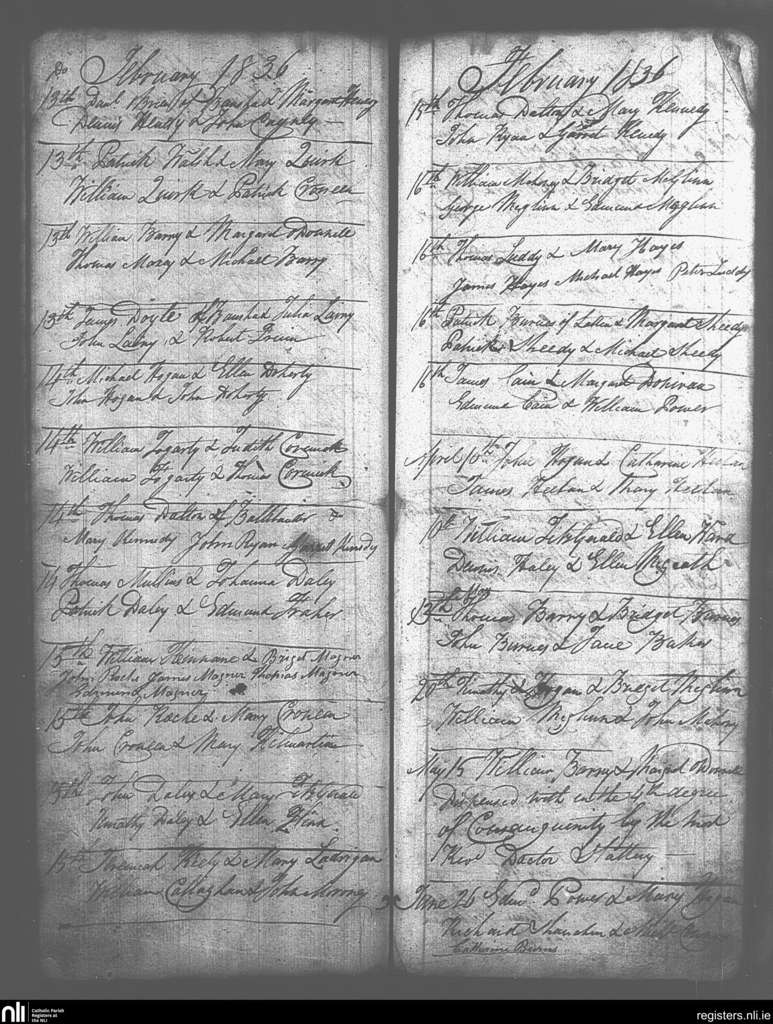 Do February 1836
13th Danl Brien of Banshad Margaret Heney
Dennis Heney & John
13th Patrick Walsh & Mary Quirk
William Quirk & Patrick Croneen
13th William Barry & Margaret ODonnell
Thomas & Michael Barry
13th James Doyle of Banshad Julia Lahy
John Lahy & Robert
14th Michael Hogan & Ellen Doherty
John Hogan & John Doherty
14th William Fogarty & Judith Cormick
William Fogarty & Thomas Cormick
14th Thomas Dalton of &
Mary Kennedy John Ryan Kennedy
14 Thomas Mullins & Johanna Daly
Patrick Daley & Edmund Fraher
15th William & Briget Magner
John Roche James Magner Thomas Magner
Edmund Magner
15th John Roche & Mary Croneen
John Croneen & Mary
15th John Daley & Mary
Timothy Daley & Ellen
15th Jeremiah Kiely & Mary
William Callaghan & John Mooney
February 1836
15th Thomas Dalton & Mary Kennedy
John Ryan & Garret Kenedy
16th William Mahony & Bridget Meglinn
George Meglinn & Edmund Meglinn
16th Thomas Luddy & Mary Hayes
James Hayes Michael Hayes Peter Luddy
16th Patrick Burnes of Latten & Margaret Sheedy
Patrick Sheedy & Michael Sheedy
16th James Cain & Margaret Donivan
Edmund Cain & William Power
April 10th John Hogan & Catharine Keelan
James Keelan & Keelan
10th William Fitzgerald & Ellen Ward
Dennis Haley & Ellen Megrath
13th Thomas Barry & Bridget Burnes
John Burnes & Jane Baker
20th Timothy & Hogan & Bridget Meglinn
William Meglinn & John
May 15 William Barry & Margret ODonnell
Dispensed with in the 4th degree
of Consanguinity by the most
Revd Doctor Slattery
June 26 Edwd Power & Mary Hogan
Richard Shanahan &
Catharine Burns
nli
Catholic Parish
Registers at
the NLI
registers.nli.ie